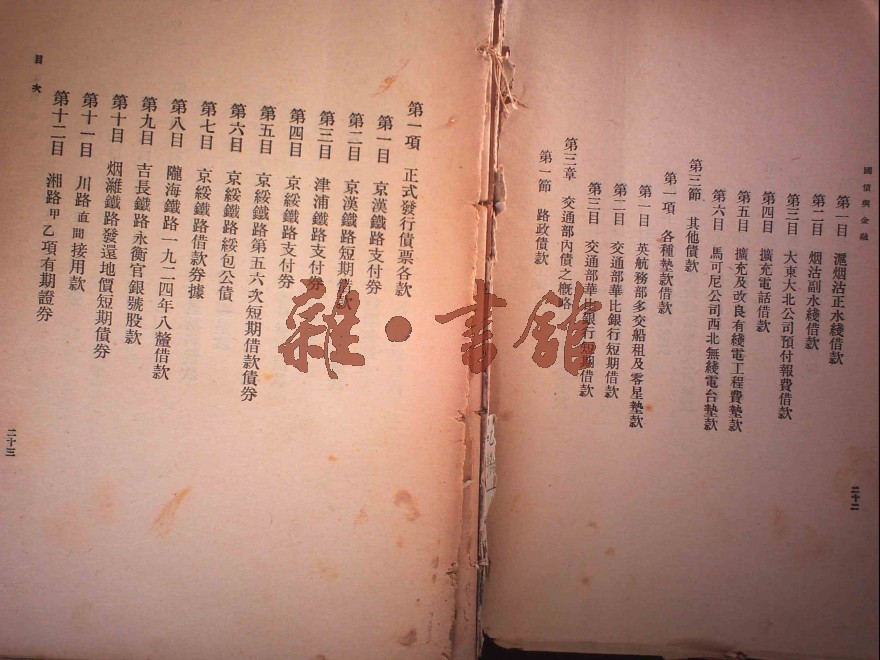 國債與金融
第一目 滬烟沽正水綫借款
第二目 烟沽副水綫借款
第三目 大東大北公司預付報費借款
第四目 擴充電話借款
第五目 擴充及改良有綫電工程費墊款
第六目 馬可尼公司西北無綫電台墊款
第三節 其他債款
第一項 各種墊款借款
第一目 英航務部多交船租及零星墊款
第二目 交通部華比銀行短期借款
第三目 交通部華比銀行短期借款
第三章 交通部內債之概略
第一節 路政債款
二十二
目次
第一項 正式發行債票各款
第一目 京漢鐵路支付券
第二目 京漢鐵路短期借款
第三目 津浦鐵路支付券
第四目 京綏鐵路支付券
第五目 京綏鐵路第五六次短期借款債券
第六目 京綏鐵路綏包公債
第七目 京綏鐵路借款券據
第八目 隴海鐵路一九二四年八釐借款
第九目 吉長鐵路永衡官銀號股款
第十目 烟濰鐵路發還地價短期債券
第十一目 川路直間接用款
第十二目 湘路甲乙項有期證券
二十三
雜·書館